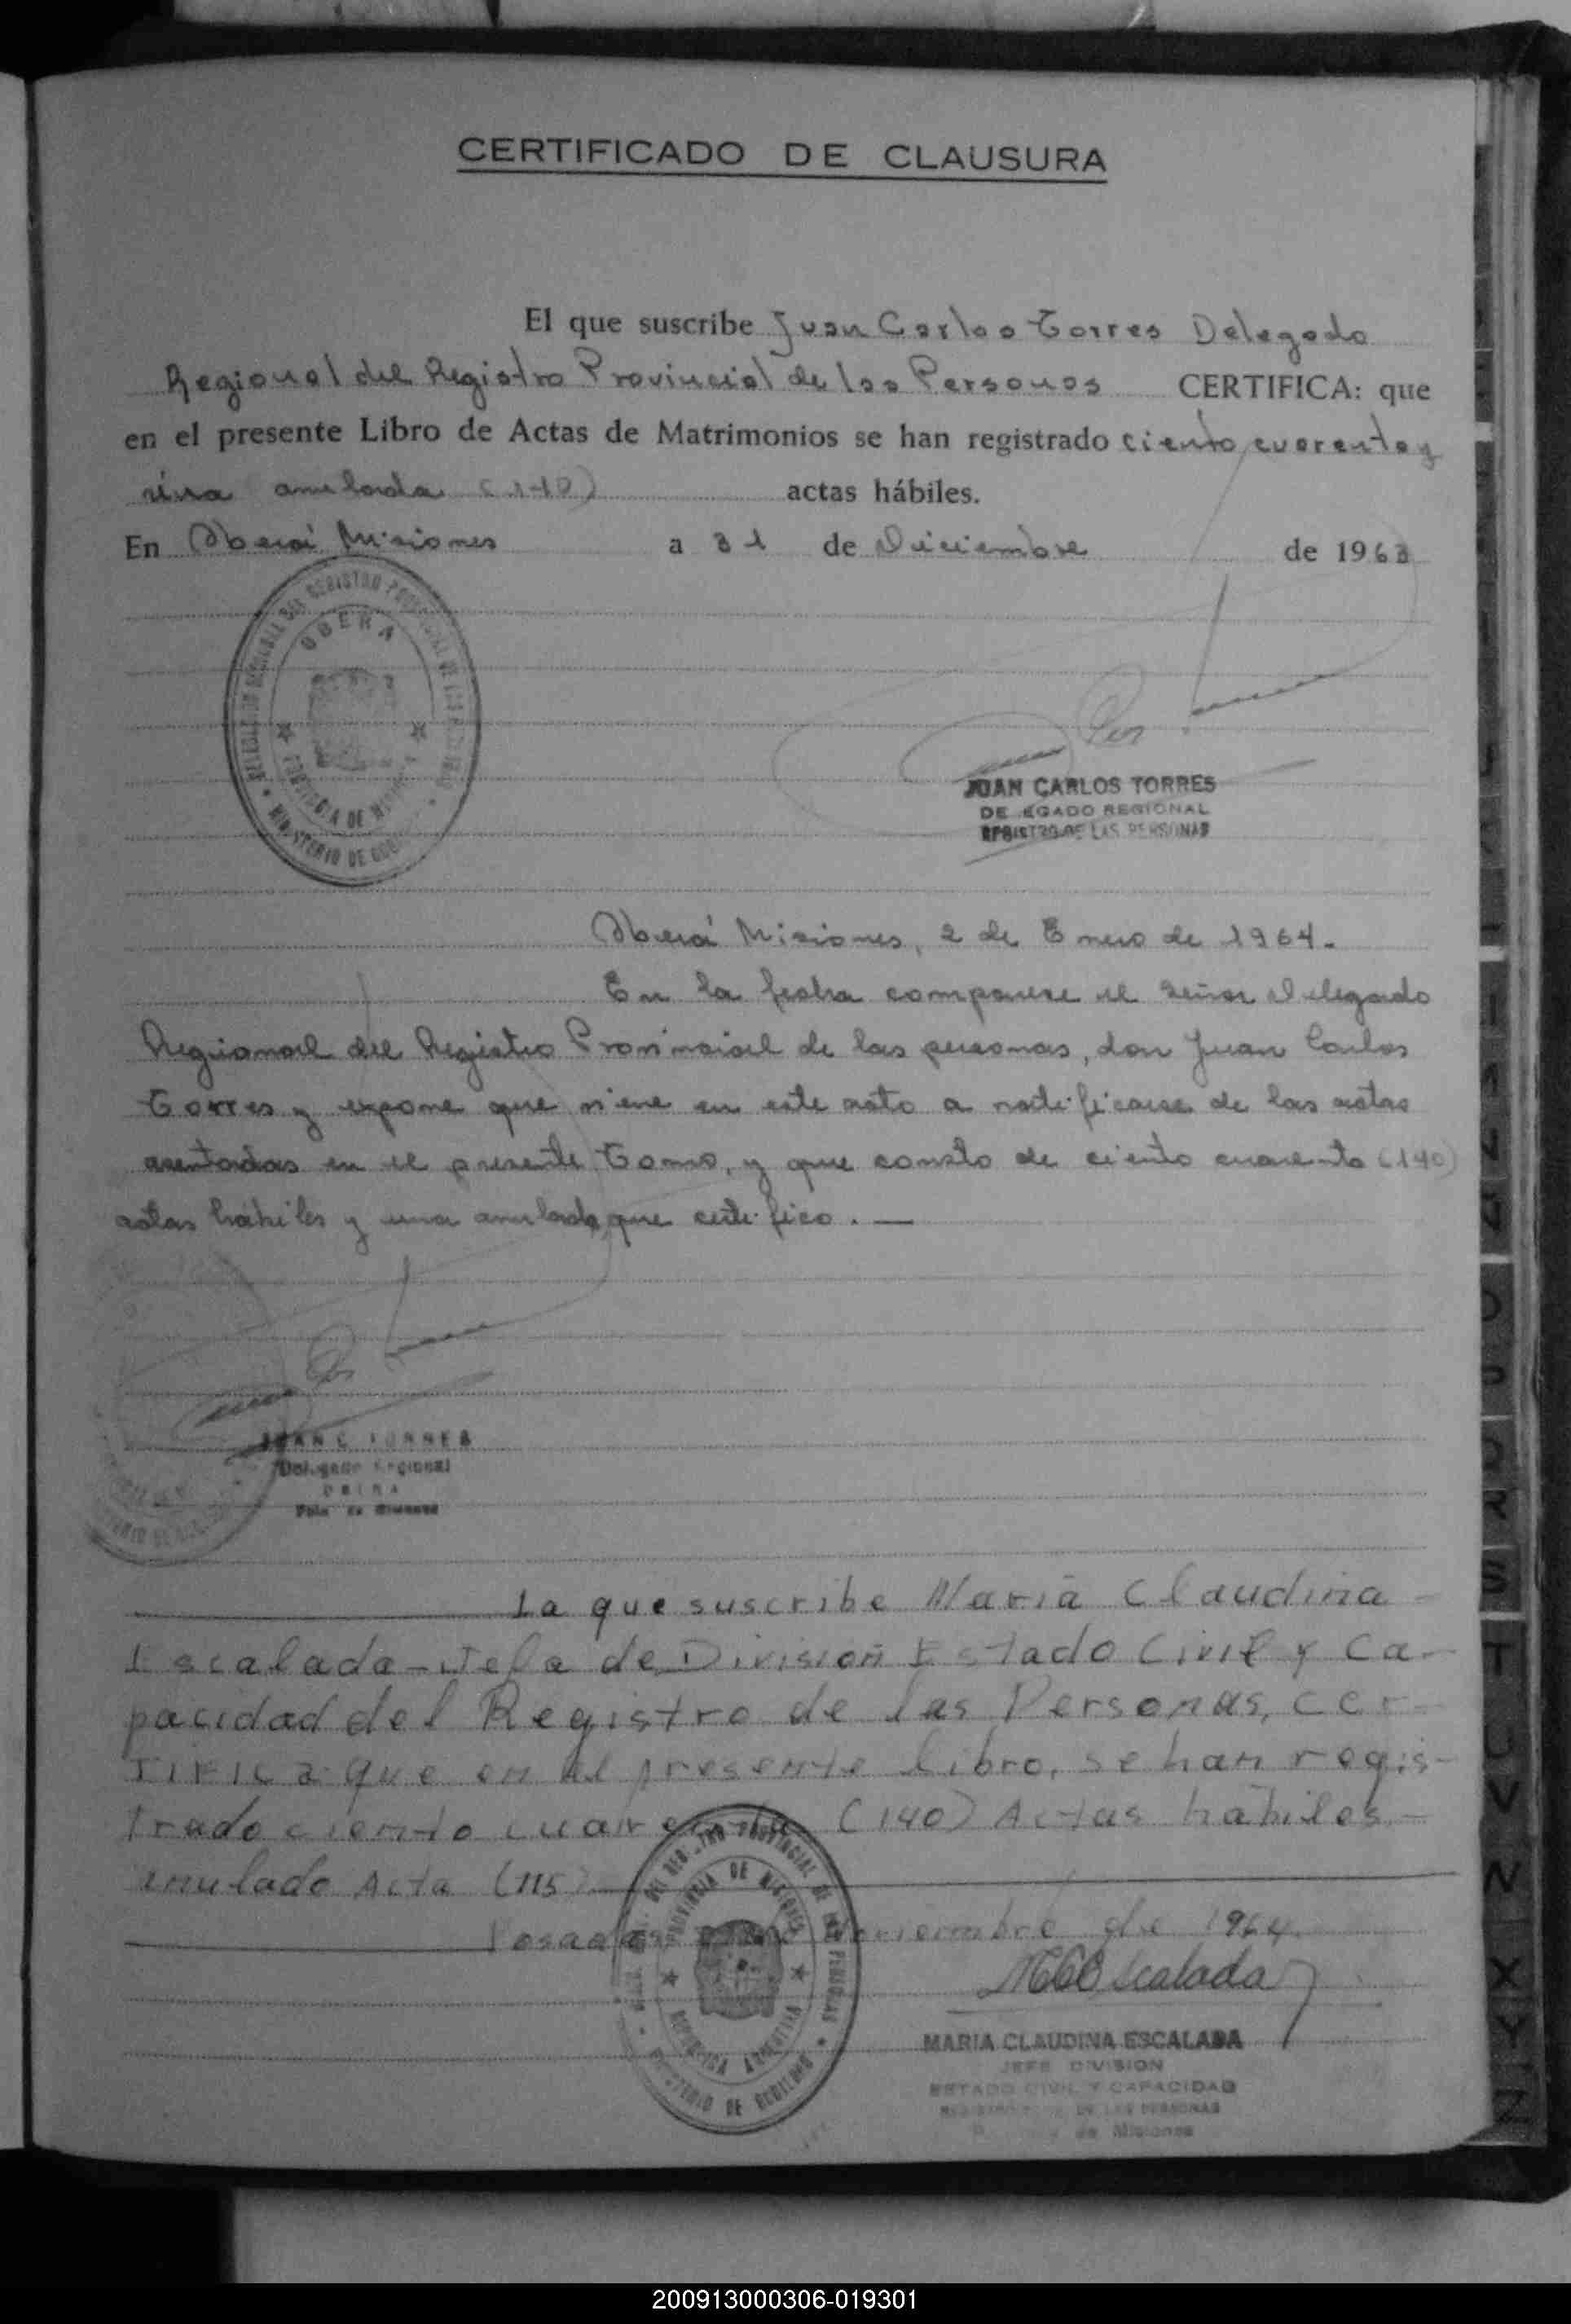 CERTIFICADO DE CLAUSURA
El que suscribe Juan Carlos Torres Delegado
Regional del Registro Provincial de las Personas CERTIFICA: que
en el presente Libro de Actas de Matrimonios se han registrado ciento cuarenta y
una anulada (140) actas hábiles.
En Oberá Misiones a 31 de Diciembre de 1963
OBERA
MINISTERIO DE
JUAN CARLOS TORRES
DELEGADO REGIONAL
REGISTRO DE LAS PERSONAS
Oberá Misiones, 2 de Enero de 1964.
En la fecha comparece el señor Delegado
Regional del Registro Provincial de las personas, don Juan Carlos
Torres y expone que viene en este acto a notificarse de las actas
asentadas en el presente Tomo, y que consta de ciento cuarenta (140)
actas hábiles y una anulada que certifico. —
JUAN C. TORRES
Delegado Regional
OBERA
La que suscribe Maria Claudina
Escalada - Jefa de Division Estado Civil y Ca-
pacidad del Registro de las Personas, cer-
tifica que en el presente libro, se han regis-
trado ciento cuarenta (140) Actas hábiles -
anulado Acta (115)
Posadas de 1964.
PROVINCIA DE MISIONES
REPUBLICA ARGENTINA
MINISTERIO DE GOBIERNO
MCEscalada
MARIA CLAUDINA ESCALADA
JEFE DIVISION
ESTADO CIVIL Y CAPACIDAD
DE LAS PERSONAS
de Misiones
T
U
V
X
Y
Z
200913000306-019301